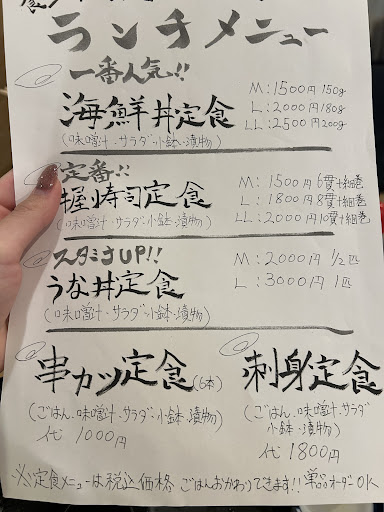 ランチメニュー
一番人気!!
海鮮丼定食
(味噌汁・サラダ・小鉢・漬物)
M:1500円 150g
L:2000円 180g
LL:2500円 200g
定番!!
握り寿司定食
(味噌汁・サラダ・小鉢・漬物)
M:1500円 6貫+細巻
L:1800円 8貫+細巻
LL:2000円 10貫+細巻
スタミナUP!!
うな丼定食
(味噌汁・サラダ・小鉢・漬物)
M:2000円 1/2匹
L:3000円 1匹
串カツ定食(6本)
(ごはん・味噌汁・サラダ・小鉢・漬物)
代 1000円
刺身定食
(ごはん・味噌汁・サラダ
小鉢・漬物)
代 1800円
※定食メニューは税込価格 ごはんおかわりできます!! 単品オーダーOK